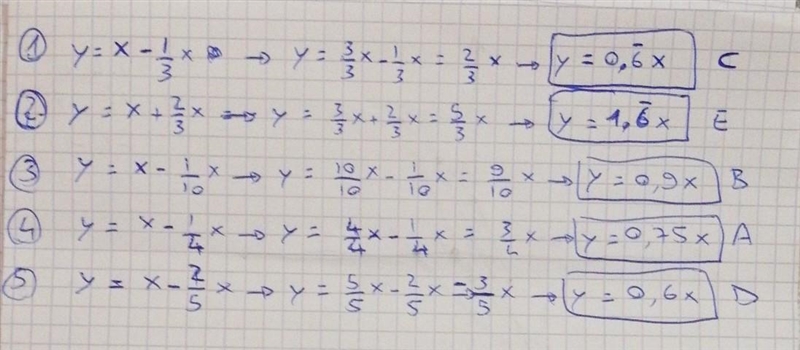 ① y = x - 1/3 x → y = 3/3 x - 1/3 x = 2/3 x → y = 0,6̄x C
② y = x + 2/3 x → y = 3/3 x + 2/3 x = 5/3 x → y = 1,6̄x E
③ y = x - 1/10 x → y = 10/10 x - 1/10 x = 9/10 x → y = 0,9x B
④ y = x - 1/4 x → y = 4/4 x - 1/4 x = 3/4 x → y = 0,75x A
⑤ y = x - 2/5 x → y = 5/5 x - 2/5 x = 3/5 x → y = 0,6x D